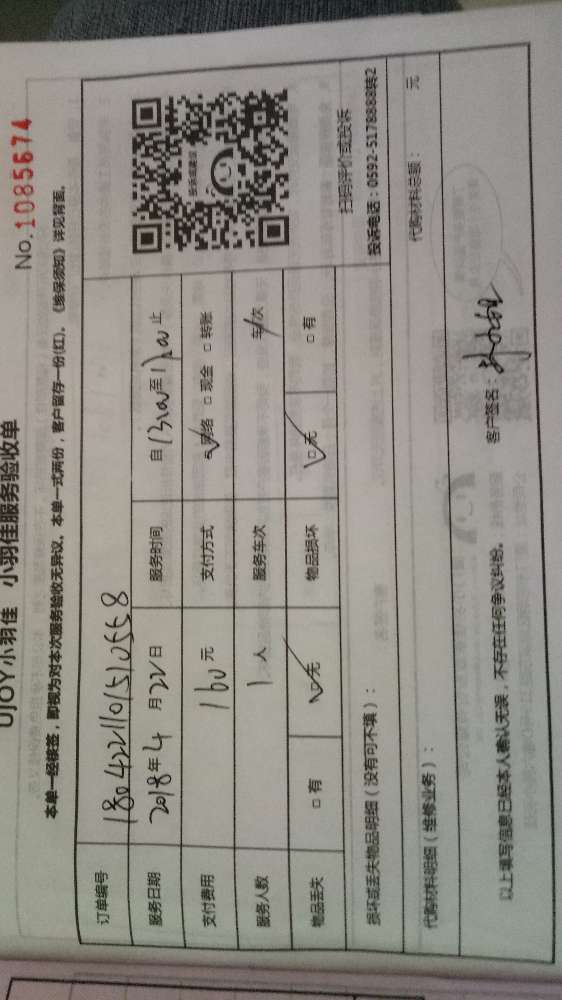 UjOY小羽佳 小羽佳服务验收单
No.1085674
本单一经核签，即视为对本次服务验收无异议。本单一式两份，客户留存一份(红)。《维保须知》详见背面。
订单编号 180422110151055 8
服务日期 2018年4月22日 服务时间 自 至 止
支付费用 160元 支付方式 ☑网络 □现金 □转账
服务人数 1人 服务车次 车/次
物品丢失 □有 ☑无 物品损坏 ☑无 □有
扫码评价或投诉
投诉电话：0592-5178888转2
损坏或丢失物品明细（没有可不填）：
代购材料明细（维修业务）： 代购材料总额： 元
以上填写信息已经本人确认无误，不存在任何争议纠纷。 客户签名：